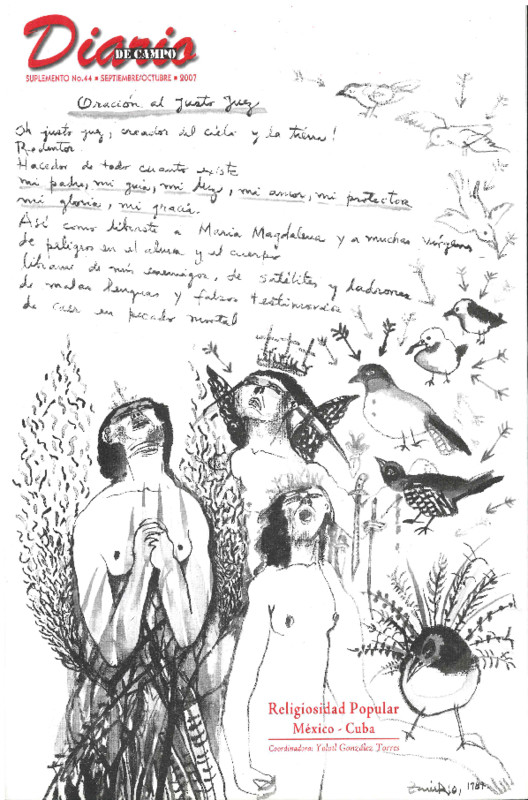 Diario
DE CAMPO
SUPLEMENTO No.44 ■ SEPTIEMBRE/OCTUBRE ■ 2007
Oración al Justo Juez
Oh justo juez, creador del cielo y la tierra!
Redentor
Hacedor de todo cuanto existe
mi padre, mi guía, mi luz, mi amor, mi protector
mi gloria, mi gracia.
Así como libraste a María Magdalena y a muchas vírgenes
de peligro en el alma y el cuerpo
librame de mis enemigos, de satélites y ladrones
de malas lenguas y falsos testimonios
de caer en pecado mortal
Religiosidad Popular
México - Cuba
Coordinadora: Yolotl González Torres